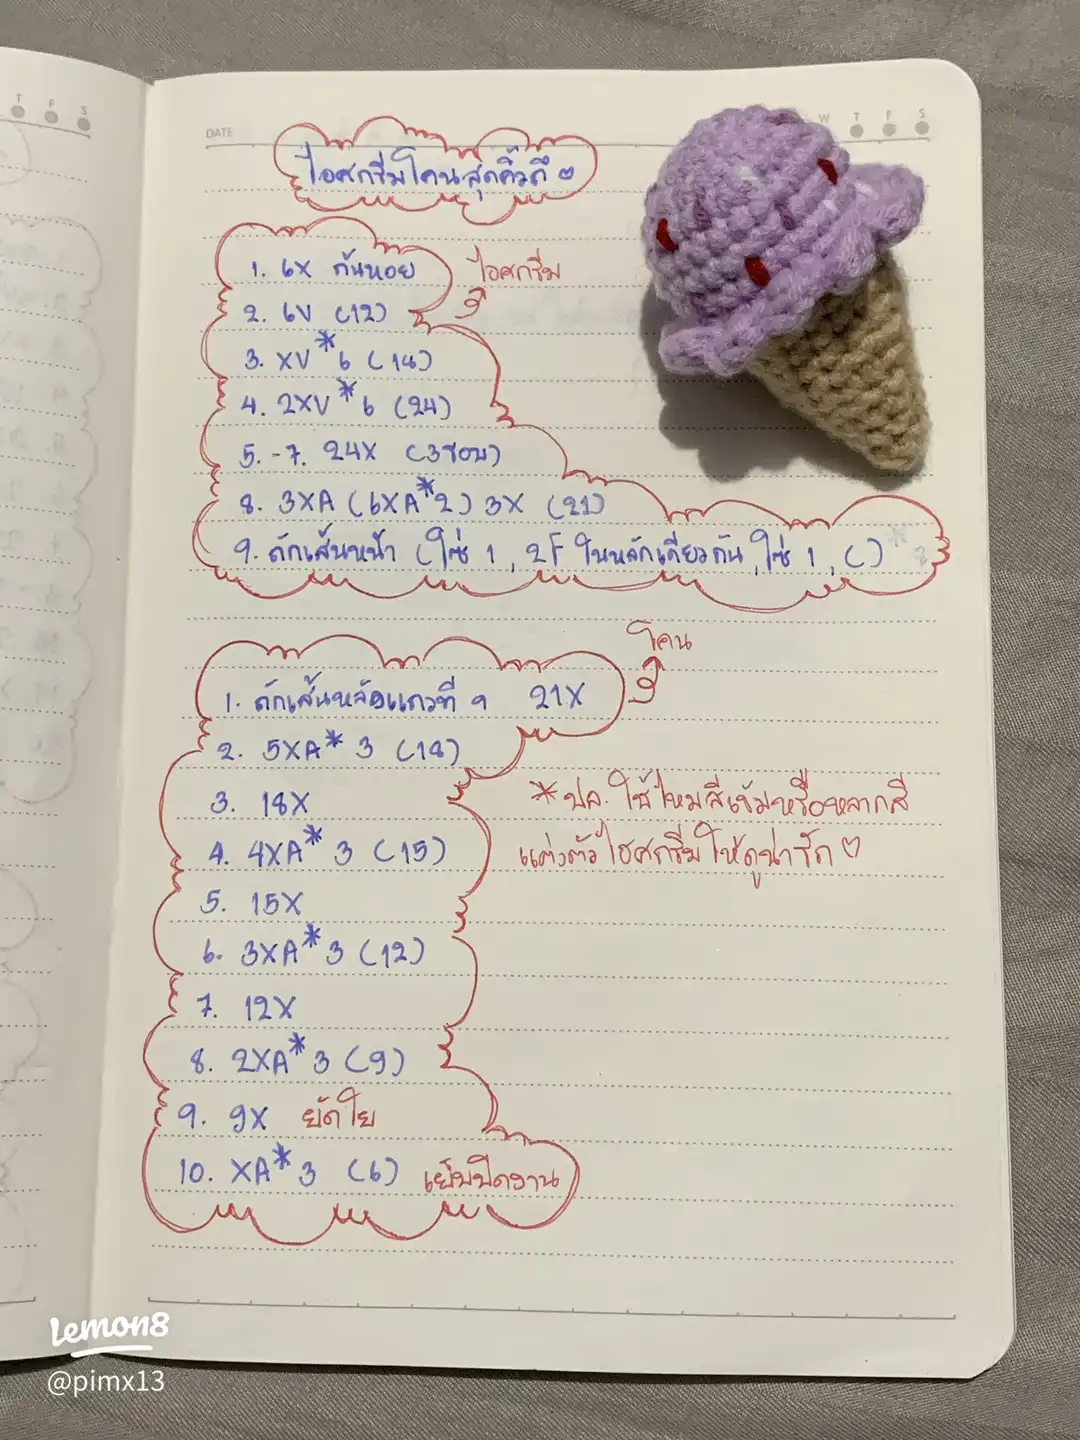 T F S
DATE
W T F S
ไอศกรีมโคนสุดคิ้วถึ ๓
1. 6X ก้นหอย
ไอศกรีม
2. 6V (12)
3. XV * 6 (18)
4. 2XV * 6 (24)
5. -7. 24X (3รอบ)
8. 3XA (6XA * 2) 3X (21)
9. ถักเส้นหน้า (โซ่ 1, 2F ในหลักเดียวกัน, โซ่ 1, ()* 7
โคน
1. ถักเส้นหลังแถวที่ 9 21X
2. 5XA * 3 (18)
3. 18X
*ปล. ใช้ไหมสีเข้มหรือหลากสี
แต่งตัวไอศกรีมให้ดูน่ารัก
4. 4XA * 3 (15)
5. 15X
6. 3XA * 3 (12)
7. 12X
8. 2XA * 3 (9)
9. 9X ยัดใย
10. XA * 3 (6) เย็บปิดงาน
Lemon8
@pimx13